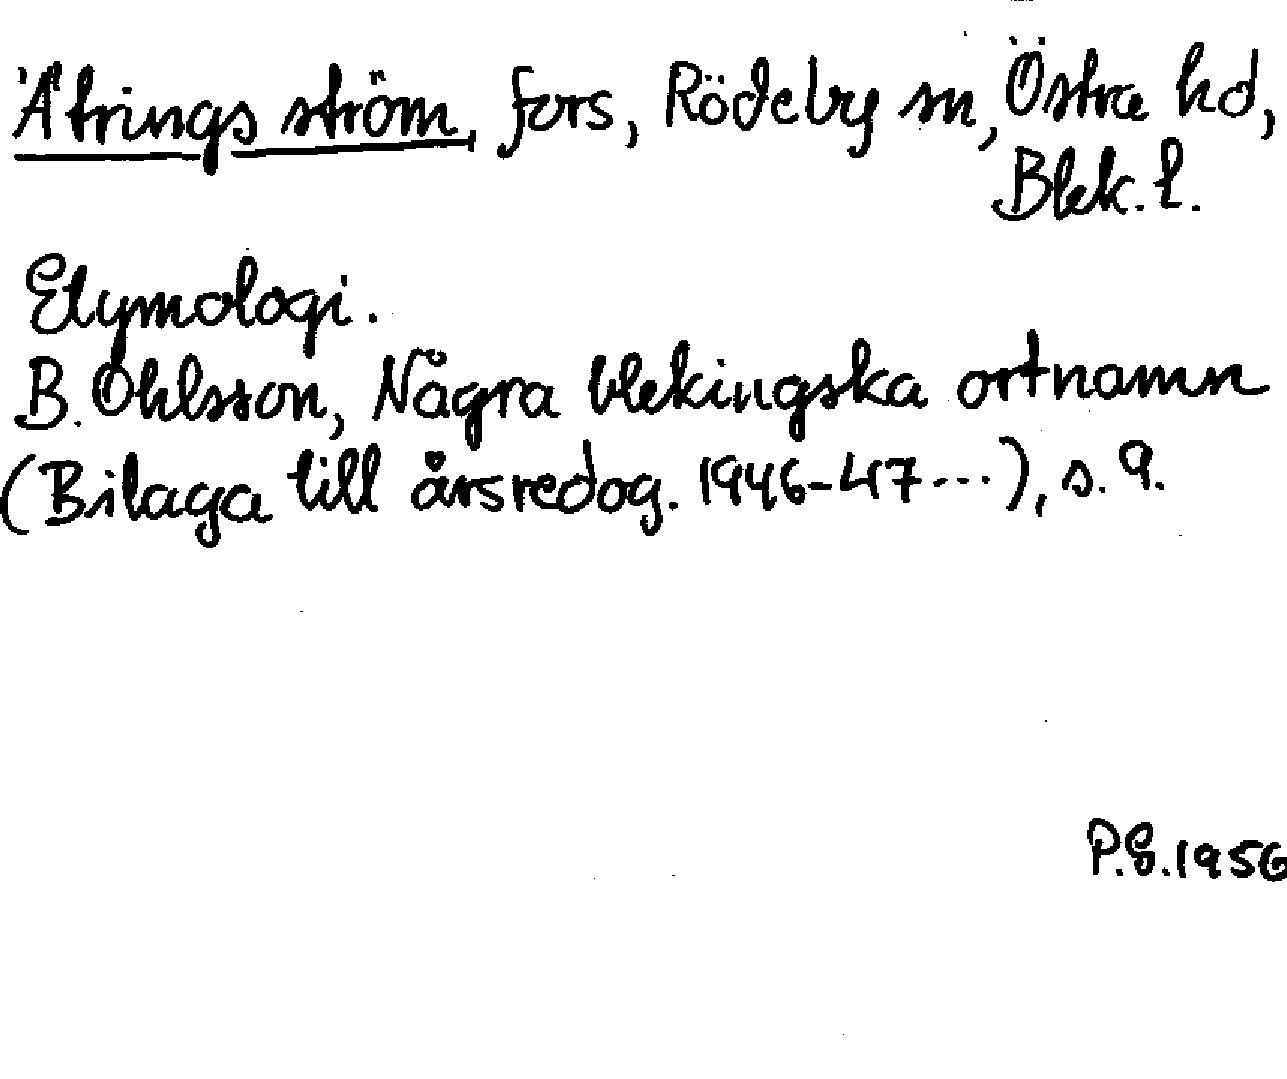 Ätrings ström, fors, Rödeby sn, Östra hd,
Blek. l.
Etymologi.
B. Ohlsson, Några blekingska ortnamn
(Bilaga till årsredog. 1946-47...), s. 9.
P.S. 1956